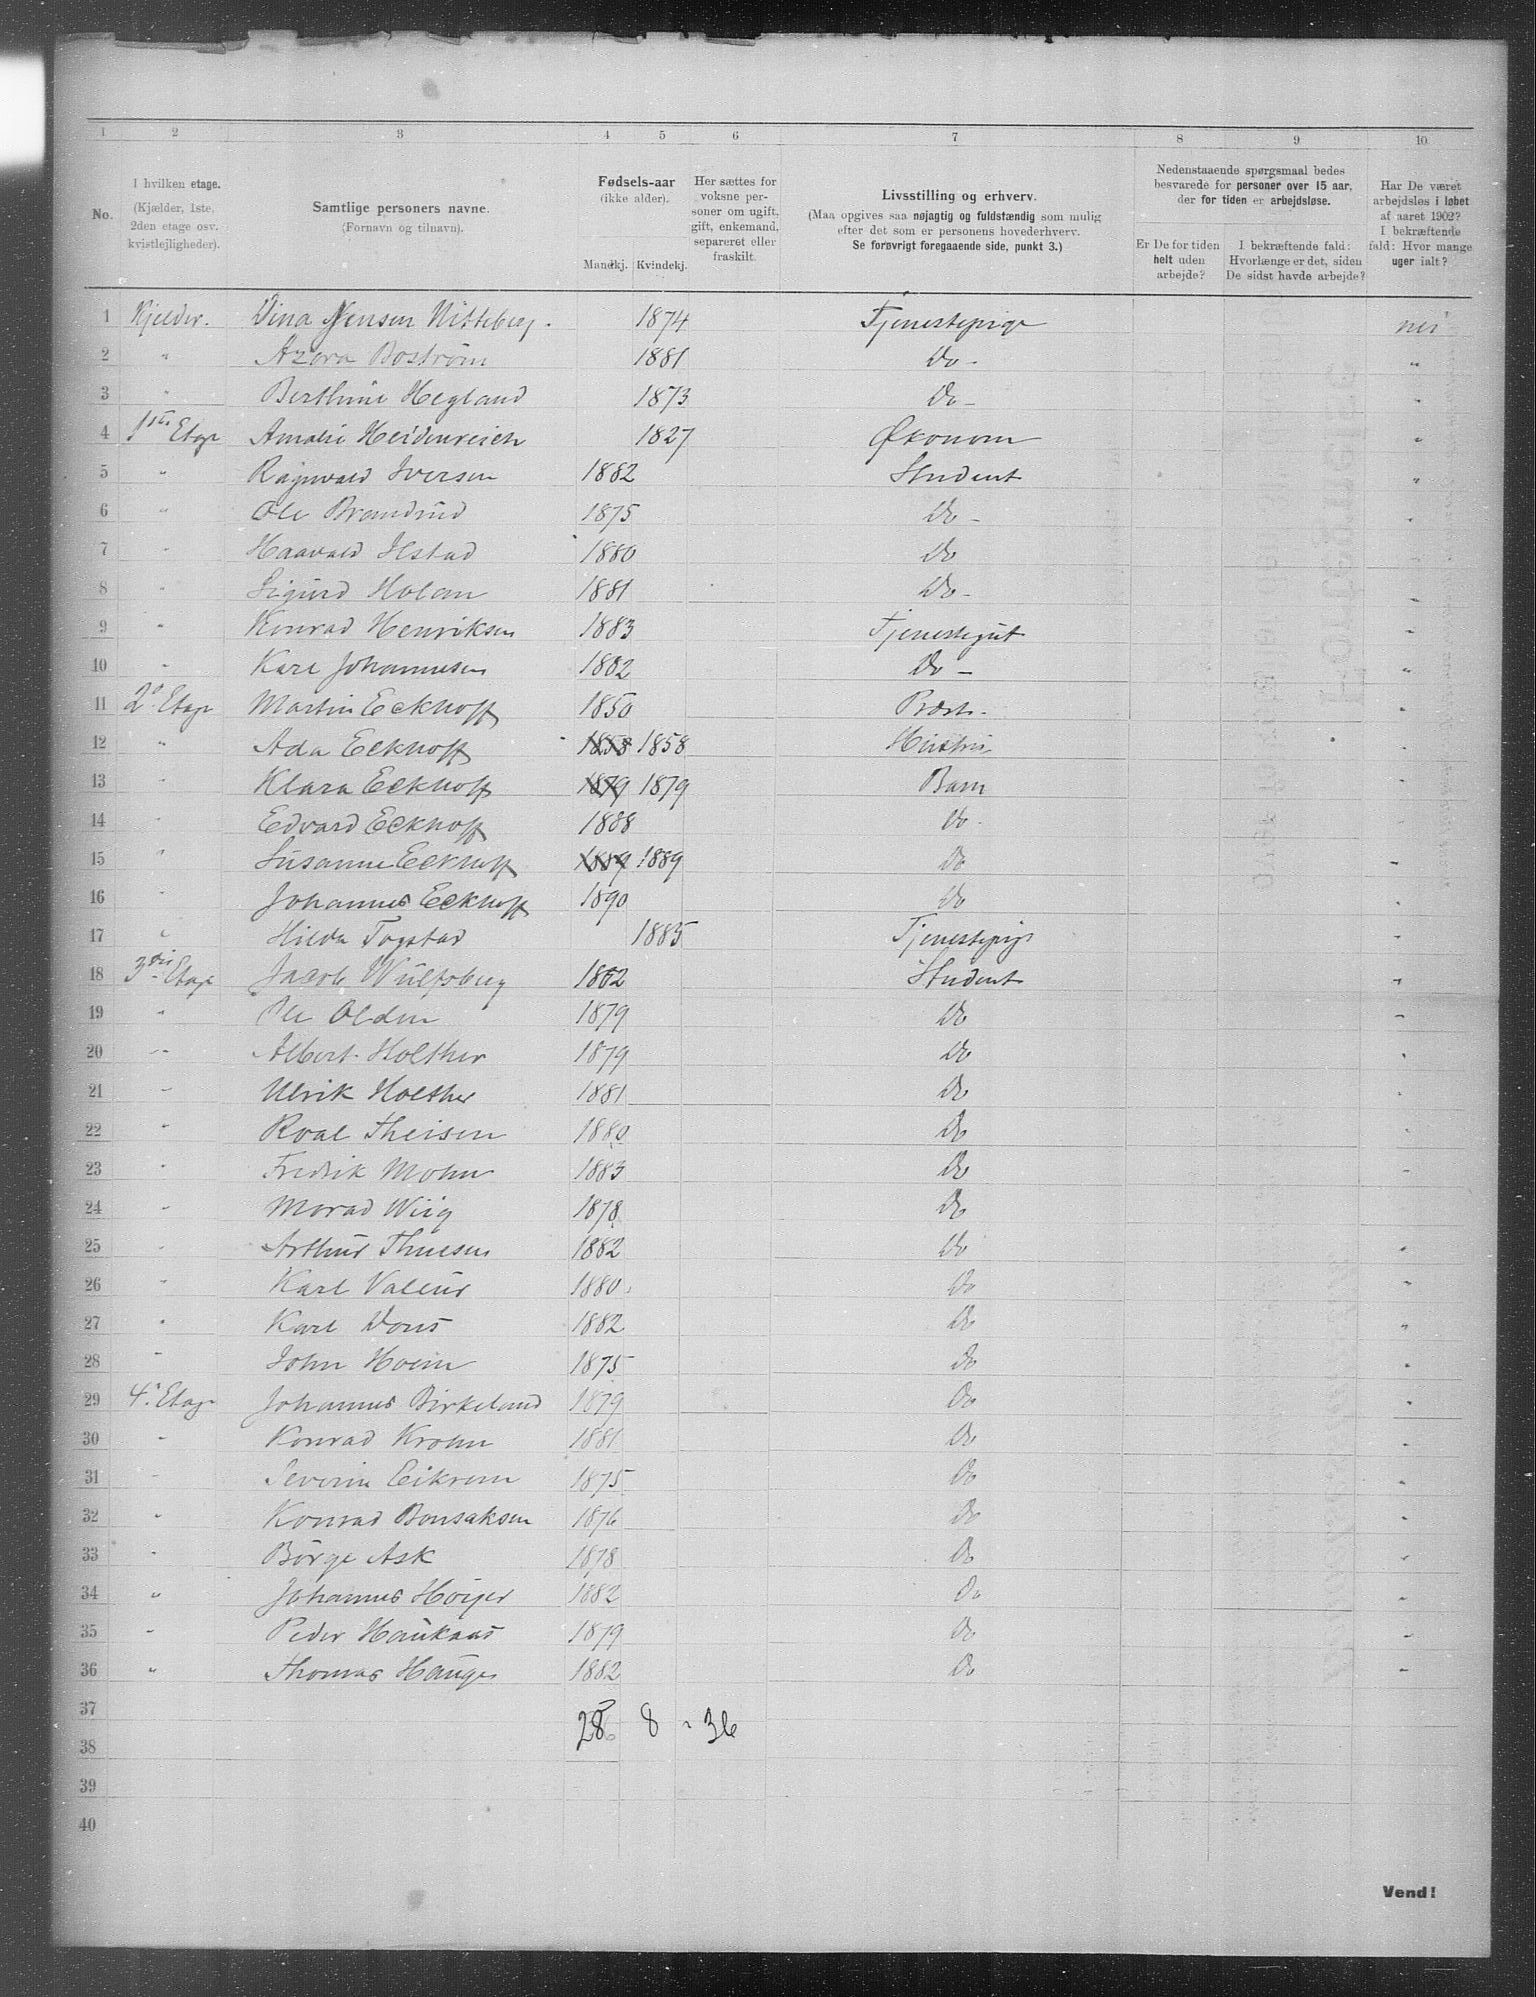 1 2 3 4 5 6 7 8 9 10
No.
I hvilken etage.
(Kjælder, 1ste,
2den etage osv.
kvistlejligheder).
Samtlige personers navne.
(Fornavn og tilnavn).
Fødsels-aar
(ikke alder).
Mandkj. Kvindekj.
Her sættes for
voksne per-
soner om ugift,
gift, enkemand,
separeret eller
fraskilt.
Livsstilling og erhverv.
(Maa opgives saa nøjagtig og fuldstændig som mulig
efter det som er personens hovederhverv.
Se forøvrigt foregaaende side, punkt 3.)
Nedenstaaende spørgsmaal bedes
besvarede for personer over 15 aar,
der for tiden er arbejdsløse.
Er De for tiden
helt uden
arbejde?
I bekræftende fald:
Hvorlænge er det, siden
De sidst havde arbejde?
Har De været
arbejdsløs i løbet
af aaret 1902?
I bekræftende
fald: Hvor mange
uger ialt?
1 Kjelder. Dina Jensen Nitteberg. 1874 Tjenestepige nei
2 " Azora Boström 1881 Do - "
3 " Berthine Hegland 1873 Do - "
4 1ste Etage Amalie Heidenreich 1827 Økonom "
5 " Ragnvald Iversen 1882 Student "
6 " Ole Brandrud 1875 Do - "
7 " Haavald Ilstad 1880 Do "
8 " Sigurd Holan 1881 Do - "
9 " Konrad Henriksen 1883 Tjenestegut "
10 " Karl Johannesen 1882 Do - "
11 2. Etage Martin Eckhoff 1850 Præst - "
12 " Ada Eckhoff 1858 1858 Hustru "
13 " Klara Eckhoff 1879 1879 Barn "
14 " Edvard Eckhoff 1888 Do - "
15 " Susanne Eckhoff 1889 1889 Do "
16 " Johannes Eckhoff 1890 Do "
17 " Hilda Togstad 1885 Tjenestepige "
18 3die Etage Jacob Wulfsberg 1882 Student "
19 " Ole Olden 1879 Do "
20 " Albert Holther 1879 Do "
21 " Ulrik Holther 1881 Do "
22 " Roal Theisen 1880 Do "
23 " Fredrik Mohn 1883 Do "
24 " Morad Wiig 1878 Do
25 " Arthur Thuesen 1882 Do "
26 " Karl Valeur 1880 Do "
27 " Karl Dons 1882 Do "
28 " John Hoem 1875 Do "
29 4. Etage Johannes Birkeland 1879 Do "
30 " Konrad Krohn 1881 Do "
31 " Severin Eikrem 1875 Do "
32 " Konrad Bonsaksen 1876 Do "
33 " Börge Ask 1878 Do "
34 " Johannes Höyer 1882 Do "
35 " Peder Haukaas 1879 Do "
36 " Thomas Hauge 1882 Do "
37
28 8 = 36
38
39
40
Vend!